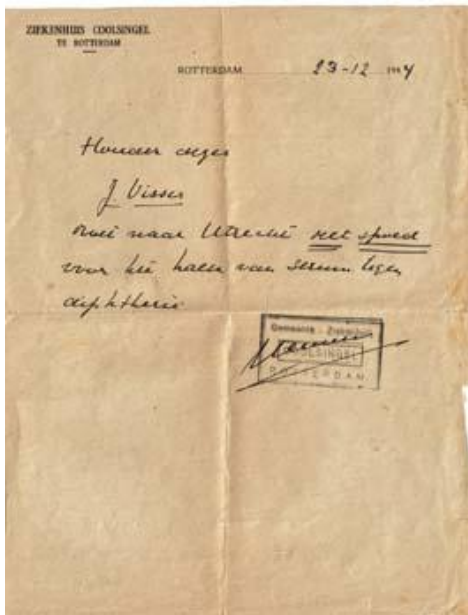 ZIEKENHUIS COOLSINGEL
TE ROTTERDAM
ROTTERDAM 23-12 1944
Houder dezes
J. Visser
moet naar Utrecht met spoed
voor het halen van serum tegen
diphtherie
Gemeente - Ziekenhuis
COOLSINGEL
ROTTERDAM